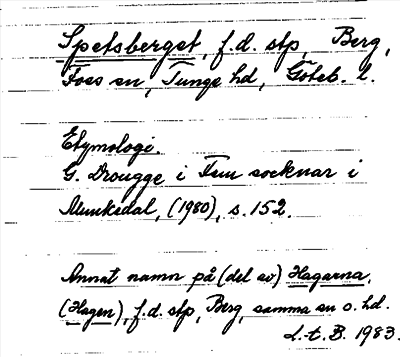 Spetsberget, f.d. stp, Berg,
Foss sn, Tunge hd, Göteb. l.
Etymologi.
G. Drougge i Fem socknar i
Munkedal, (1980), s. 152.
Annat namn på (del av) Hagarna,
(Hagen), f.d. stp, Berg, samma sn o. hd.
L-t. B. 1983.